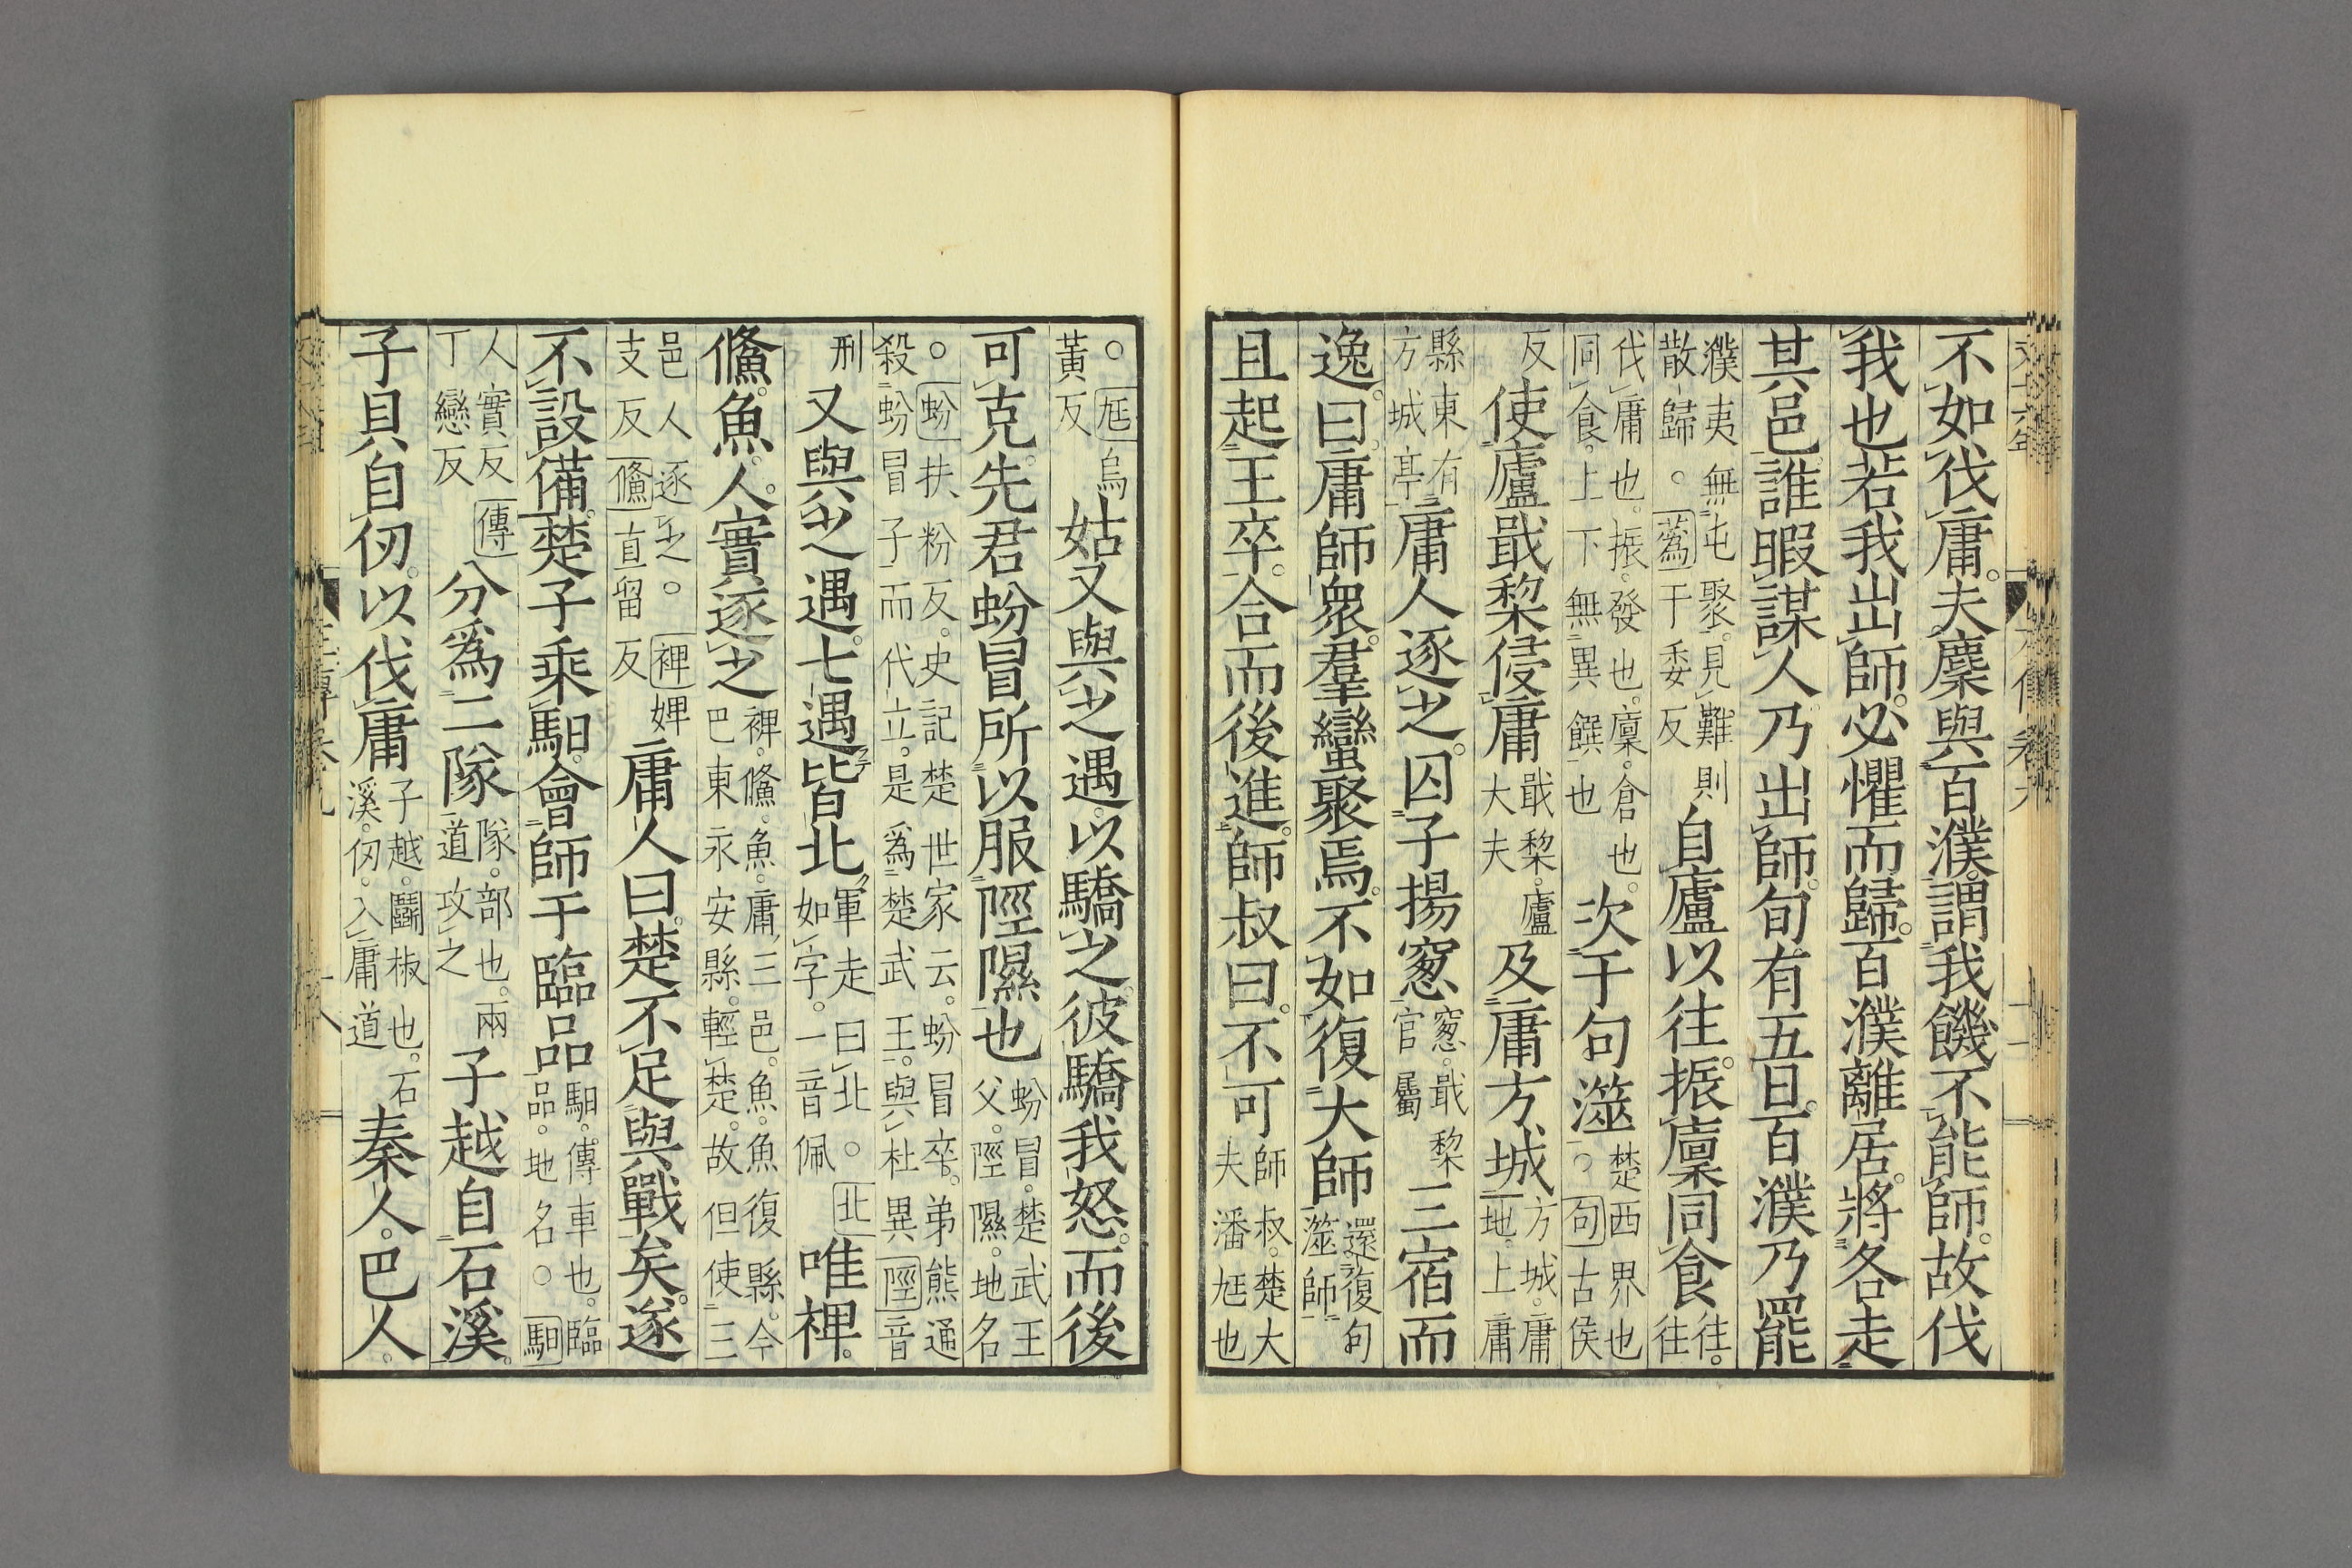 不如伐庸。夫麇與百濮。謂我饑不能師。故伐
我也若我出師。必懼而歸。百濮離居。將各走
其邑。誰暇謀人乃出師。旬有五日。百濮乃罷
濮夷無屯聚。見難則散歸。蒍于委反自廬以往。振廩同食往。往
伐庸也。振。發也。廩。倉也。同食。上下無異饌也次于句澨楚西界也。句古侯
反使廬戢黎侵庸戢黎。廬大夫及庸方城方城。庸地。上庸
縣東有方城亭庸人逐之。囚子揚窻窻。戢黎官屬三宿而
逸。曰。庸師衆。羣蠻聚焉。不如復大師還復句澨師
且起王卒。合而後進。師叔曰。不可師叔。楚大夫潘尫也
。尫烏黃反姑又與之遇。以驕之。彼驕我怒。而後
可克。先君蚡冒所以服陘隰也蚡冒。楚武王父。陘隰。地名
。蚡扶粉反。史記楚世家云。蚡冒卒。弟熊通殺蚡冒子而代立。是爲楚武王。與杜異陘音
刑又與之遇。七遇皆北軍走曰北。北如字。一音佩唯裨。
鯈。魚。人。實逐之裨。鯈。魚。庸三邑。魚。魚復縣。今巴東永安縣。輕楚。故但使三
邑人逐之。裨婢支反鯈直留反庸人曰。楚不足與戰矣。遂
不設備。楚子乘馹。會師于臨品馹。傳車也。臨品。地名。馹
人實反傳丁戀反分爲二隊隊。部也。兩道攻之子越自石溪。
子貝自仞。以伐庸子越。鬬椒也。石溪。仞。入庸道秦人。巴人。